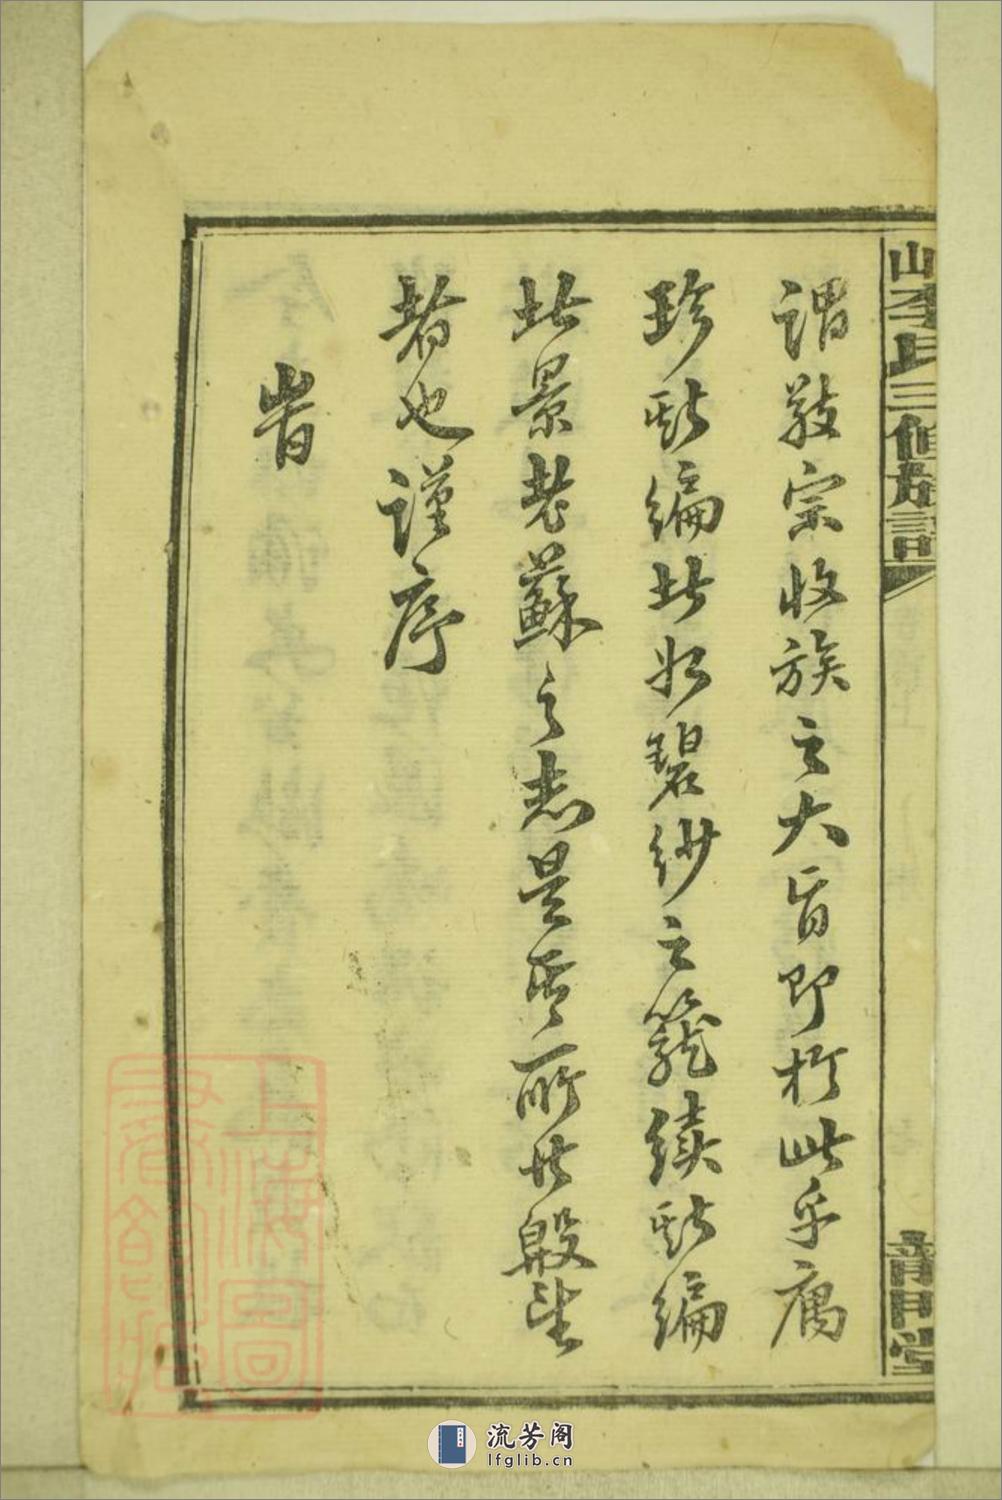 山李氏三修族譜
堂
謂敬宗收族之大旨即於此乎寓
珍斯編此如碧紗之籠續斯編
此景老蘇之志是吾所共殷望
者也謹序
旹
上海圖
書館藏
流芳阁
lfglib.cn